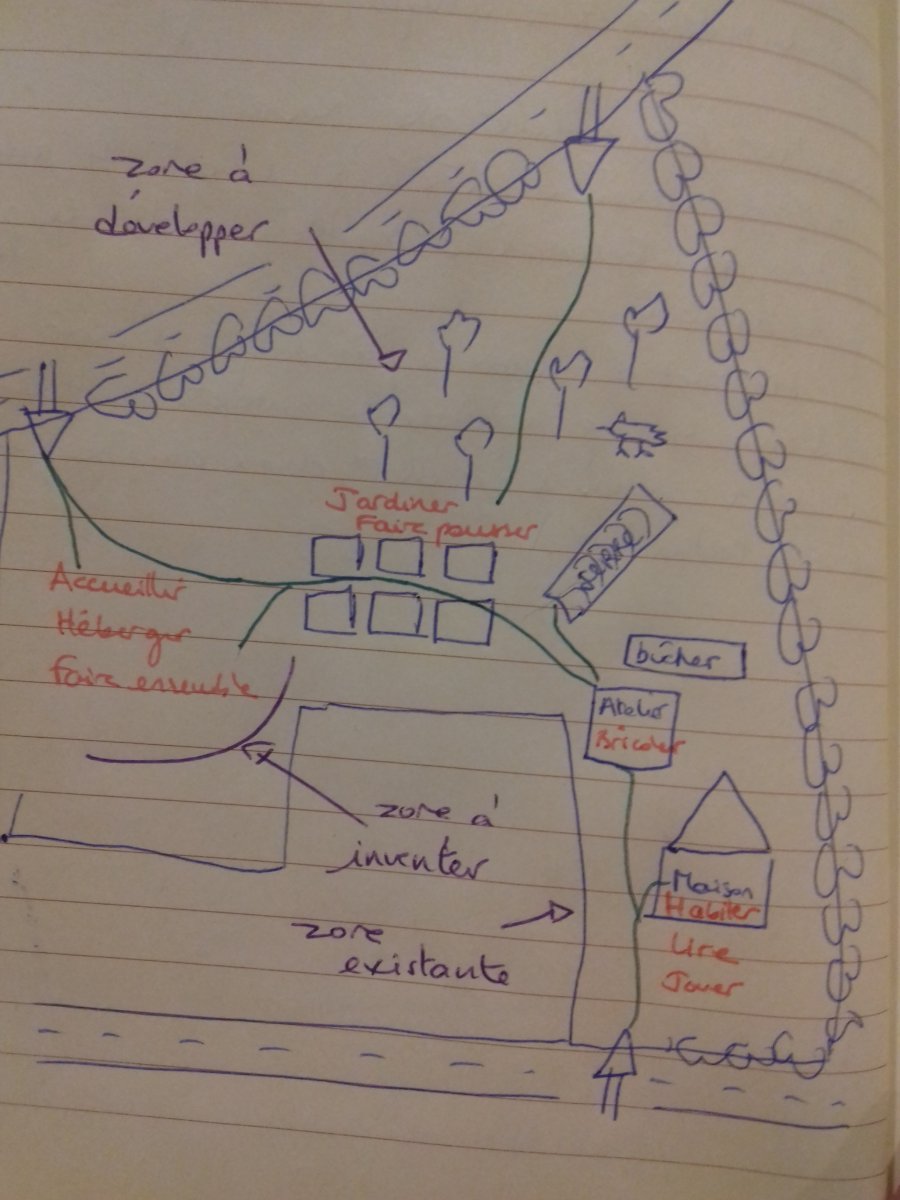 zone à
développer
Jardiner
Faire pousser
Accueillir
Héberger
Faire ensemble
serre
bûcher
Atelier
Bricoler
zone à
inventer
Maison
Habiter
Lire
Jouer
zone
existante